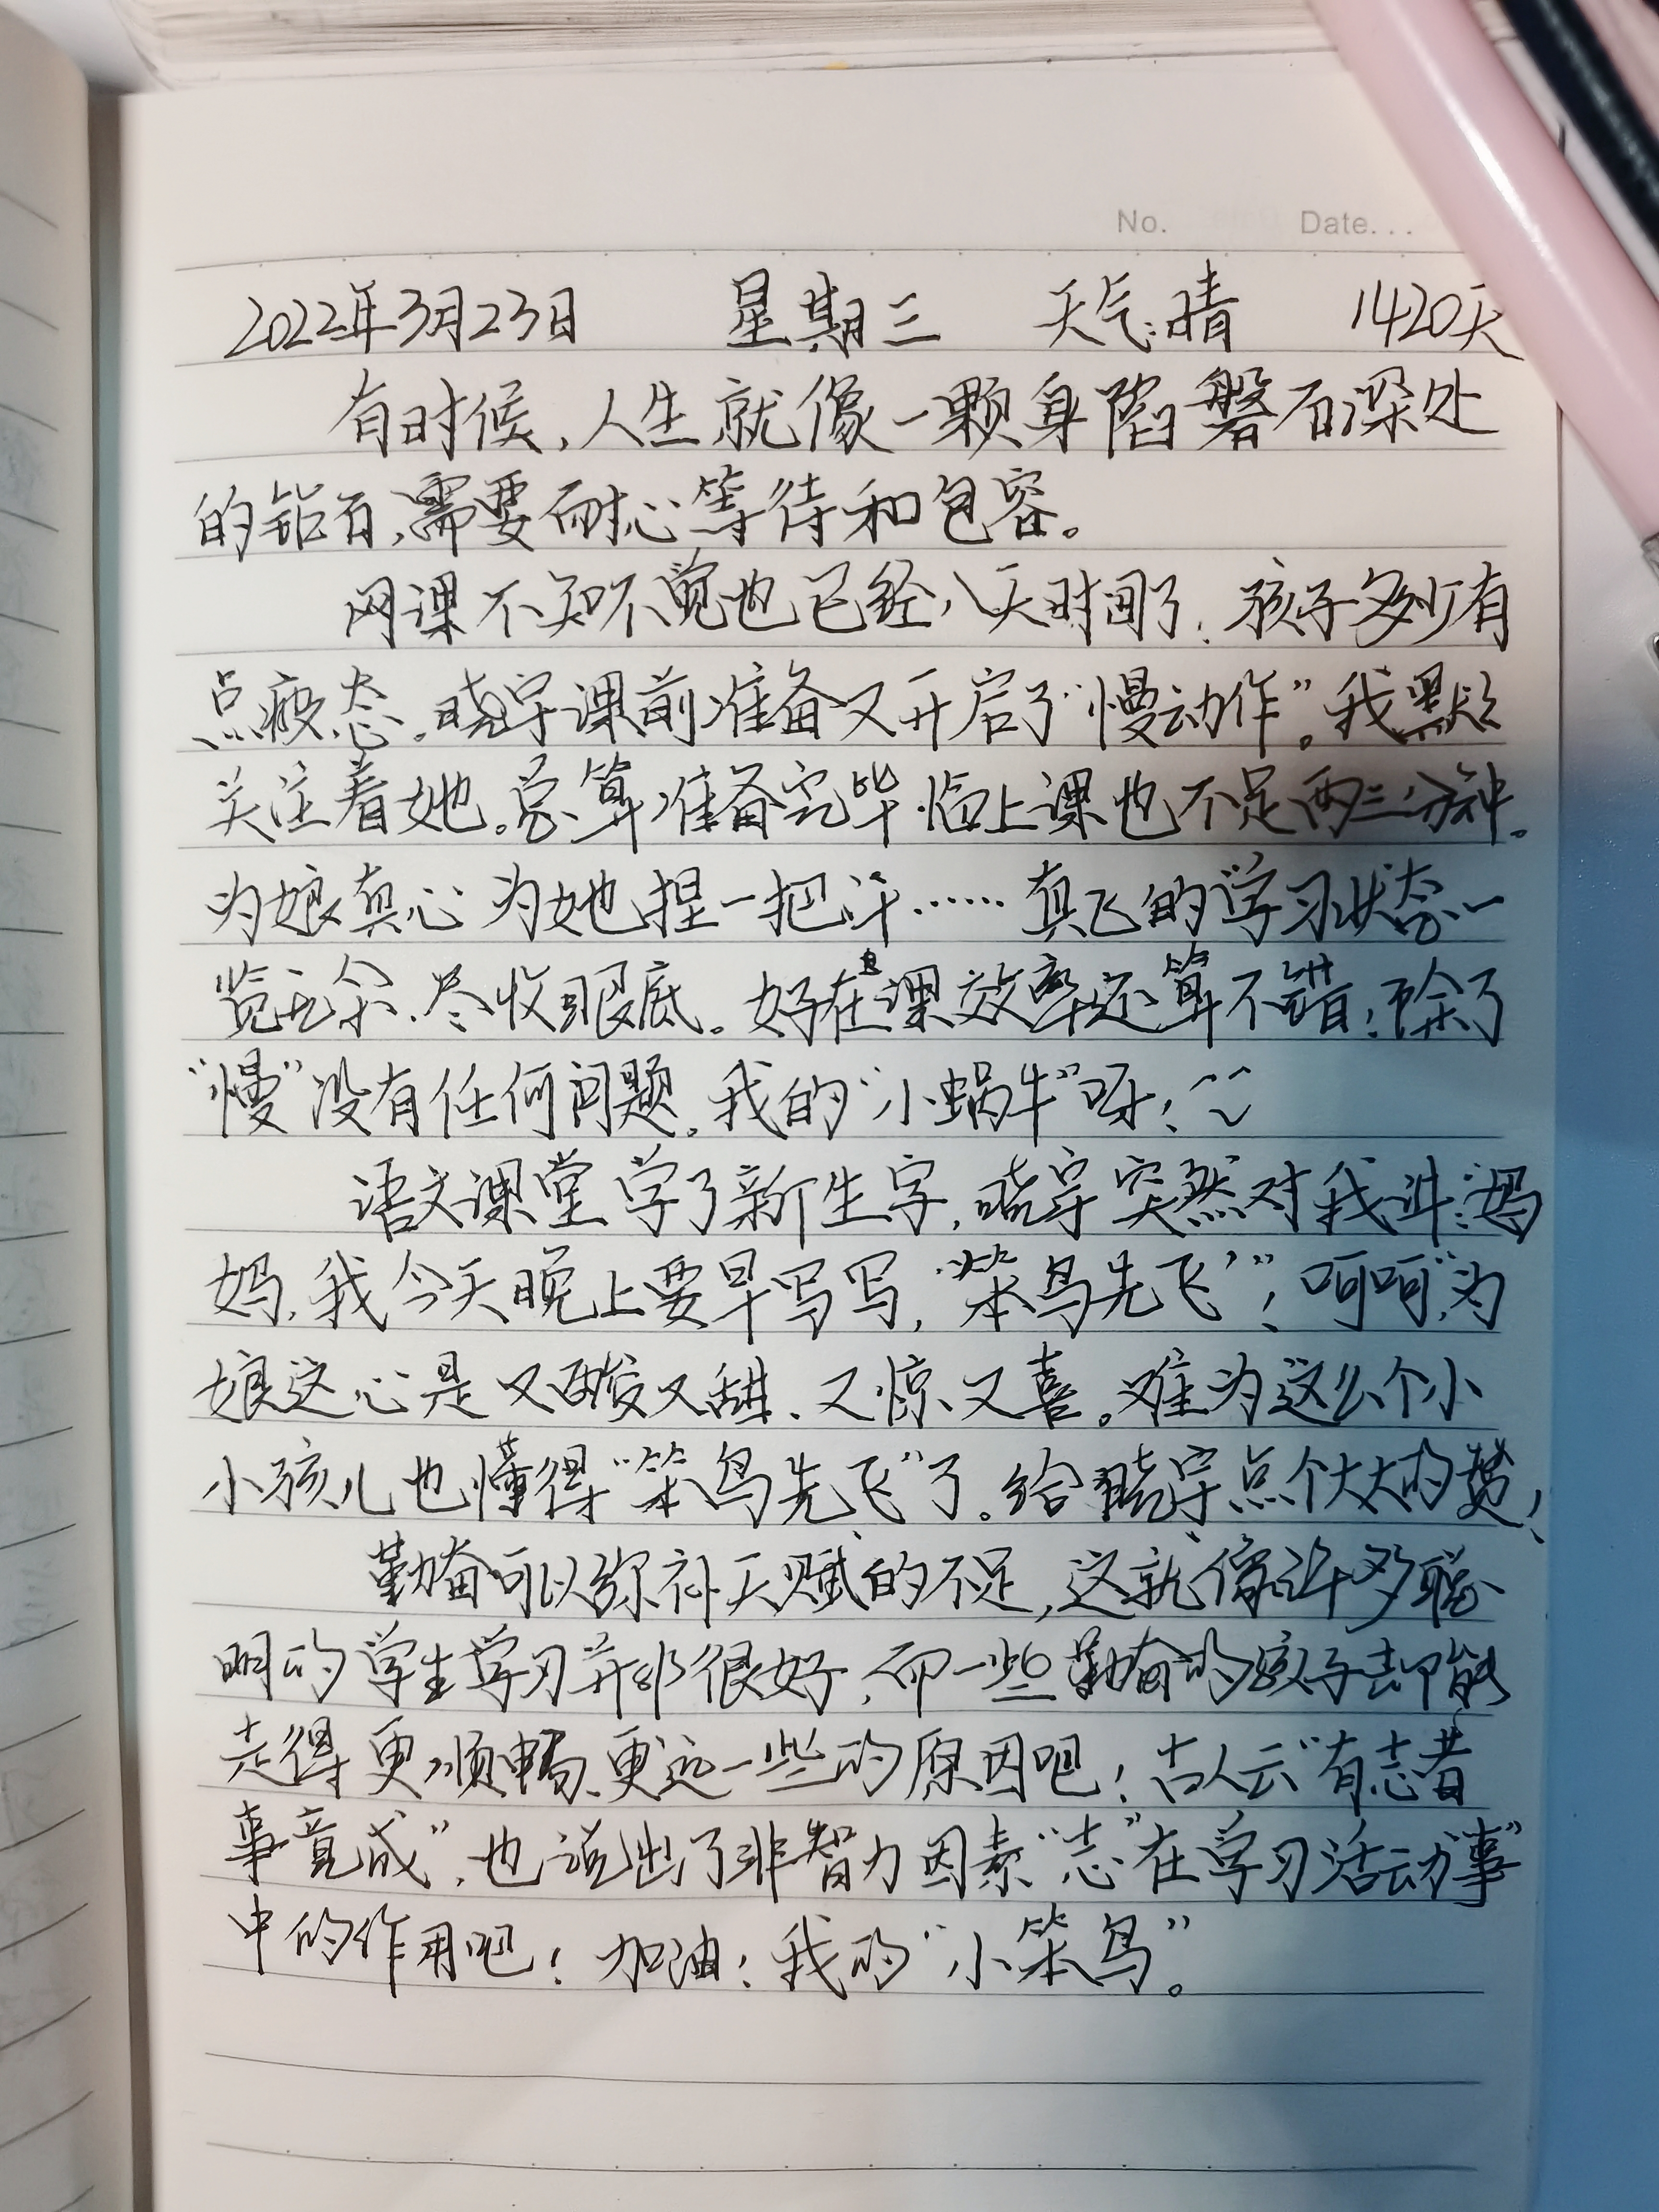 No. Date...
2022年3月23日 星期三 天气:晴 1420天
有时候,人生就像一颗身陷磐石深处
的钻石,需要耐心等待和包容。
网课不知不觉也已经八天时间了,孩子多少有
点疲态。晓宇课前准备又开启了“慢动作”。我默默
关注着她。总算准备完毕临上课也不足两三分钟。
为娘真心为她捏一把汗……真飞的学习状态一
览无余、尽收眼底。好在上课效率还算不错!除了
“慢”没有任何问题。我的“小蜗牛”呀!
语文课堂学了新生字,晓宇突然对我讲:“妈
妈,我今天晚上要早写写,‘笨鸟先飞’”!呵呵,为
娘这心是又酸又甜、又惊又喜。难为这么个小
小孩儿也懂得“笨鸟先飞”了。给晓宇点个大大的赞!
勤奋可以弥补天赋的不足,这就像许多聪
明的学生学习并非很好,而一些勤奋的孩子却能
走得更顺畅、更远一些的原因吧!古人云“有志者
事竟成”,也说出了非智力因素“志”在学习活动“事”
中的作用吧!加油!我的“小笨鸟”。